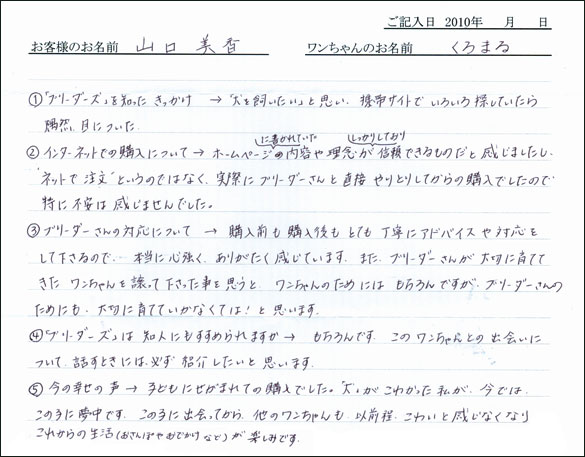 ご記入日 2010年 月 日
お客様のお名前 山口 美香 ワンちゃんのお名前 くろまる
①「ブリーダーズ」を知ったきっかけ → 「犬を飼いたい」と思い、携帯サイトでいろいろ探していたら
偶然、目についた。
に書かれていた しっかりしており
② インターネットでの購入について → ホームページの内容や理念が信頼できるものだと感じましたし、
"ネットで注文"というのではなく、実際にブリーダーさんと直接やりとりしてからの購入でしたので
特に不安は感じませんでした。
③ ブリーダーさんの対応について → 購入前も購入後もとても丁寧にアドバイスや対応を
して下さるので、本当に心強く、ありがたく感じています。また、ブリーダーさんが大切に育てて
きたワンちゃんを譲って下さった事を思うと、ワンちゃんのためにはもちろんですが、ブリーダーさんの
ためにも、大切に育てていかなくては!と思います。
④「ブリーダーズ」は知人にもすすめられますか → もちろんです。このワンちゃんとの出会いに
ついて、話すときには必ず紹介したいと思います。
⑤ 今の幸せの声 → 子どもにせがまれての購入でした。"犬"がこわかった私が、今では、
この子に夢中です。この子に出会ってから、他のワンちゃんも、以前程、こわいと感じなくなり
これからの生活(おさんぽやおでかけなど)が楽しみです。